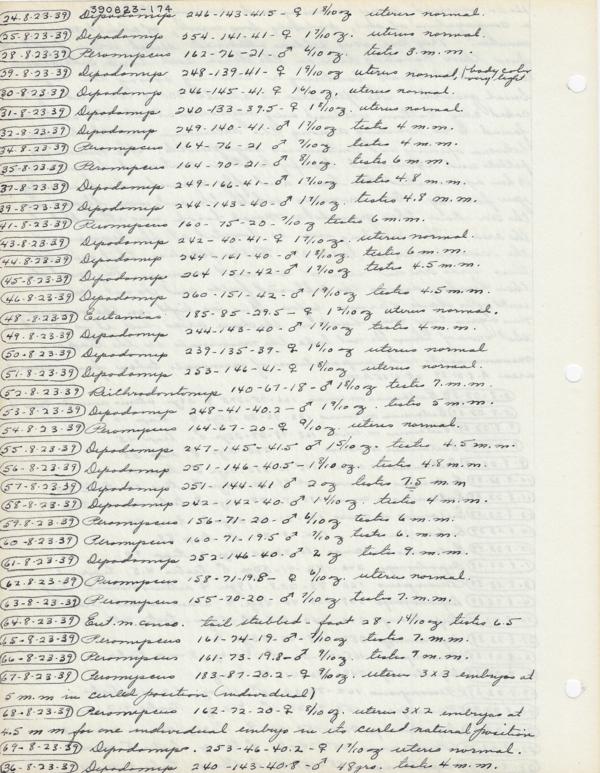 390823-174
24-8-23-39 Dipodomys 246-143-41.5 - ♀ 1 9/10 oz uterus normal.
25-8-23-39 Dipodomys 254-141-41 - ♀ 1 7/10 oz. uterus normal.
28-8-23-39 Peromyscus 162-76-21 - ♂ 6/10 oz. testis 3. m.m.
29-8-23-39 Dipodomys 248-139-41 - ♀ 1 9/10 oz uterus normal, (body color very light
30-8-23-39 Dipodomys 246-145-41. ♀ 1 6/10 oz, uterus normal.
31-8-23-39 Dipodomys 240-133-39.5 - ♀ 1 8/10 oz. uterus normal.
32-8-23-39 Dipodomys 249-140-41 - ♂ 1 9/10 oz testis 4 m.m.
34-8-23-39 Peromyscus 164-76-21 ♂ 7/10 oz testis 4 m.m.
35-8-23-39 Peromyscus 164-70-21 - ♂ 8/10 oz. testis 6 m.m.
37-8-23-39 Dipodomys 249-166-41 - ♂ 1 9/10 oz testis 4.8 m.m.
39-8-23-39 Dipodomys 244-143-40 - ♂ 1 9/10 oz. testis 4.8 m.m.
41-8-23-39 Peromyscus 160-75-20 - 7/10 oz testis 6 m.m.
43-8-23-39 Dipodomys 242-40-41 - ♀ 1 7/10 oz. uterus normal.
44-8-23-39 Dipodomys 244-141-40 - ♂ 1 8/10 oz. testis 6 m.m.
45-8-23-39 Dipodomys 264 151-42 - ♂ 1 9/10 oz testis 4.5 m.m.
46-8-23-39 Dipodomys 260-151-42 - ♂ 1 9/10 oz testis 4.5 m.m.
48-8-23-39 Eutamias 185-85-29.5 - ♀ 1 2/10 oz uterus normal.
49-8-23-39 Dipodomys 244-143-40 - ♂ 1 9/10 oz testis 4 m.m.
50-8-23-39 Dipodomys 239-135-39 - ♀ 1 6/10 oz uterus normal
51-8-23-39 Dipodomys 253-146-41 - ♀ 1 8/10 oz uterus normal.
52-8-23-39 Reithrodontomys 140-67-18 - ♂ testis 7. m.m.
53-8-23-39 Dipodomys 248-41-40.2 - ♂ 1 9/10 oz. testis 5 m.m.
54-8-23-39 Peromyscus 164-67-20 - ♀ 9/10 oz uterus normal.
55-8-23-39 Dipodomys 247-145-41.5 ♂ 1 5/10 oz. testis 4.5 m.m.
56-8-23-39 Dipodomys 251-146-40.5 - 1 9/10 oz. testis 4.8 m.m.
57-8-23-39 Dipodomys 251-144-41 ♂ 2 oz testis 7.5 m.m
58-8-23-39 Dipodomys 242-142-40 ♂ 1 4/10 oz. testis 4 m.m.
59-8-23-39 Peromyscus 156-71-20 - ♂ 6/10 oz testis 6 m.m.
60-8-23-39 Peromyscus 160-71-19.5 ♂ 7/10 oz testis 6. m.m.
61-8-23-39 Dipodomys 252-146-40. ♂ 2 oz testis 9. m.m.
62-8-23-39 Peromyscus 158-71-19.8 - ♀ 6/10 oz. uterus normal.
63-8-23-39 Peromyscus 155-70-20 - ♂ 7/10 oz testis 7. m.m.
64-8-23-39 Eut. m. conso. tail stubbed - foot 28 - 1 4/10 oz testis 6.5
65-8-23-39 Peromyscus 161-74-19 - ♂ - 7/10 oz testis 7. m.m.
66-8-23-39 Peromyscus 161-73-19.8 - ♂ 9/10 oz. testis 9 m.m.
67-8-23-39 Peromyscus 183-87-20.2 - ♀ 9/10 oz. uterus 3X3 embryos at
5 m.m in curled position (individual)
68-8-23-39 Peromyscus 162-72-20 - ♀ 8/10 oz. uterus 3X2 embryos at
4.5 m m for one individual embryo in its curled natural position
69-8-23-39 Dipodomys. 253-46-40.2 - ♀ 1 9/10 oz uterus normal.
36-8-23-39 Dipodomys 240-143-40.8 - ♂ 48 grs. testis 4 m.m.